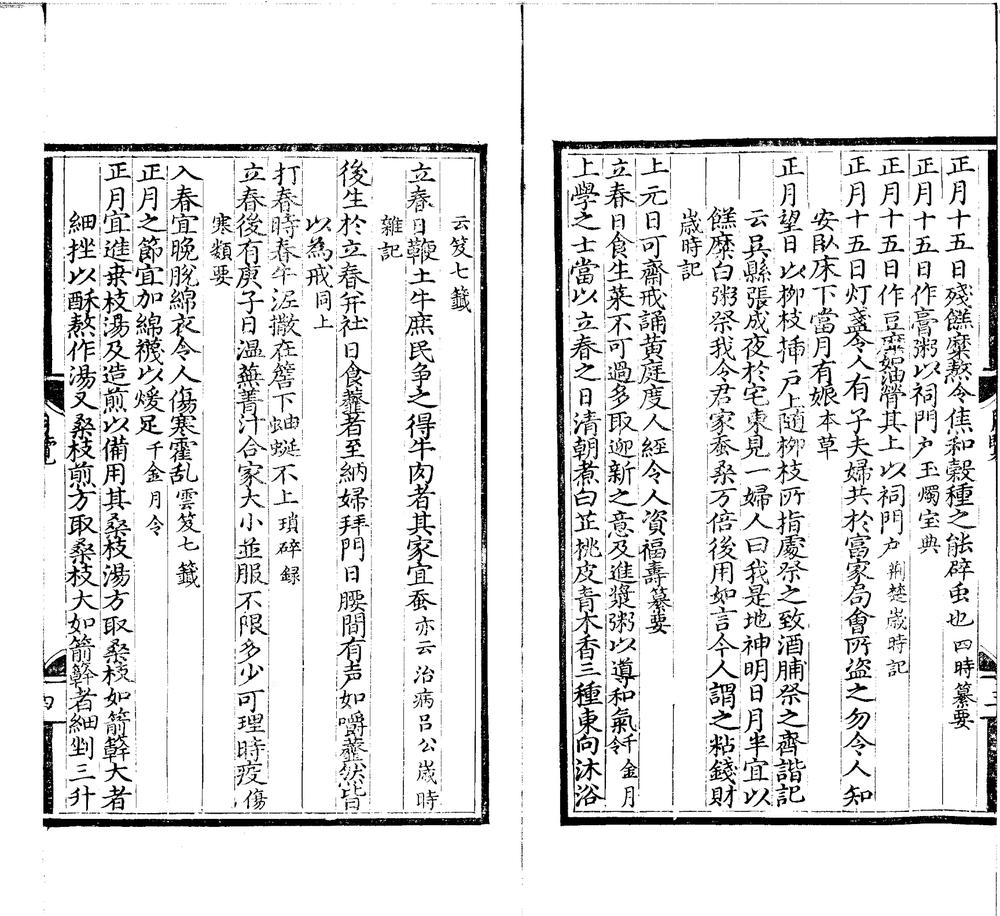 正月十五日殘餻糜熬令焦和穀種之能辟虫也四時纂要
正月十五日作膏粥以祠門户玉燭宝典
正月十五日作豆糜加油膏其上以祠門户荆楚歲時記
正月十五日灯盞令人有子夫婦共於富家局會所盜之勿令人知
安卧床下當月有娠本草
正月望日以柳枝插户上随柳枝所指處祭之致酒脯祭之齊諧記
云吳縣張成夜於宅東見一婦人曰我是地神明日月半宜以
餻糜白粥祭我令君家蚕桑万倍後用如言今人謂之粘錢財
歲時記
上元日可齋戒誦黄庭度人經令人資福壽纂要
立春日食生菜不可過多取迎新之意及進漿粥以導和氣千金月令
上學之士當以立春之日清朝煮白芷桃皮青木香三種東向沐浴
云笈七籤
立春日鞭土牛庶民争之得牛肉者其家宜蚕亦云治病吕公歲時
雜記
後生於立春并社日食虀者至納婦拜門日腰間有声如嚼虀然皆
以為戒同上
打春時春牛泥撒在簷下蚰蜒不上瑣碎録
立春後有庚子日温蕪菁汁合家大小並服不限多少可理時疫傷
寒類要
入春宜晚脫綿衣令人傷寒霍乱雲笈七籤
正月之節宜加綿襪以煖足千金月令
正月宜進桒枝湯及造煎以備用其桑枝湯方取桑枝如箭簳大者
細挫以酥熬作湯又桑枝煎方取桑枝大如箭簳者細剉三升
四